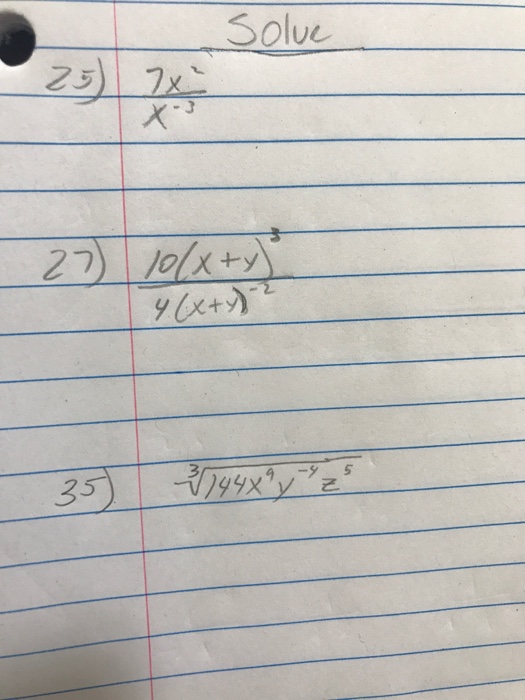 Solve
25) 7x²
x⁻³
27) 10(x+y)³
4(x+y)⁻²
35) ∛144x⁹y⁻⁴z⁵